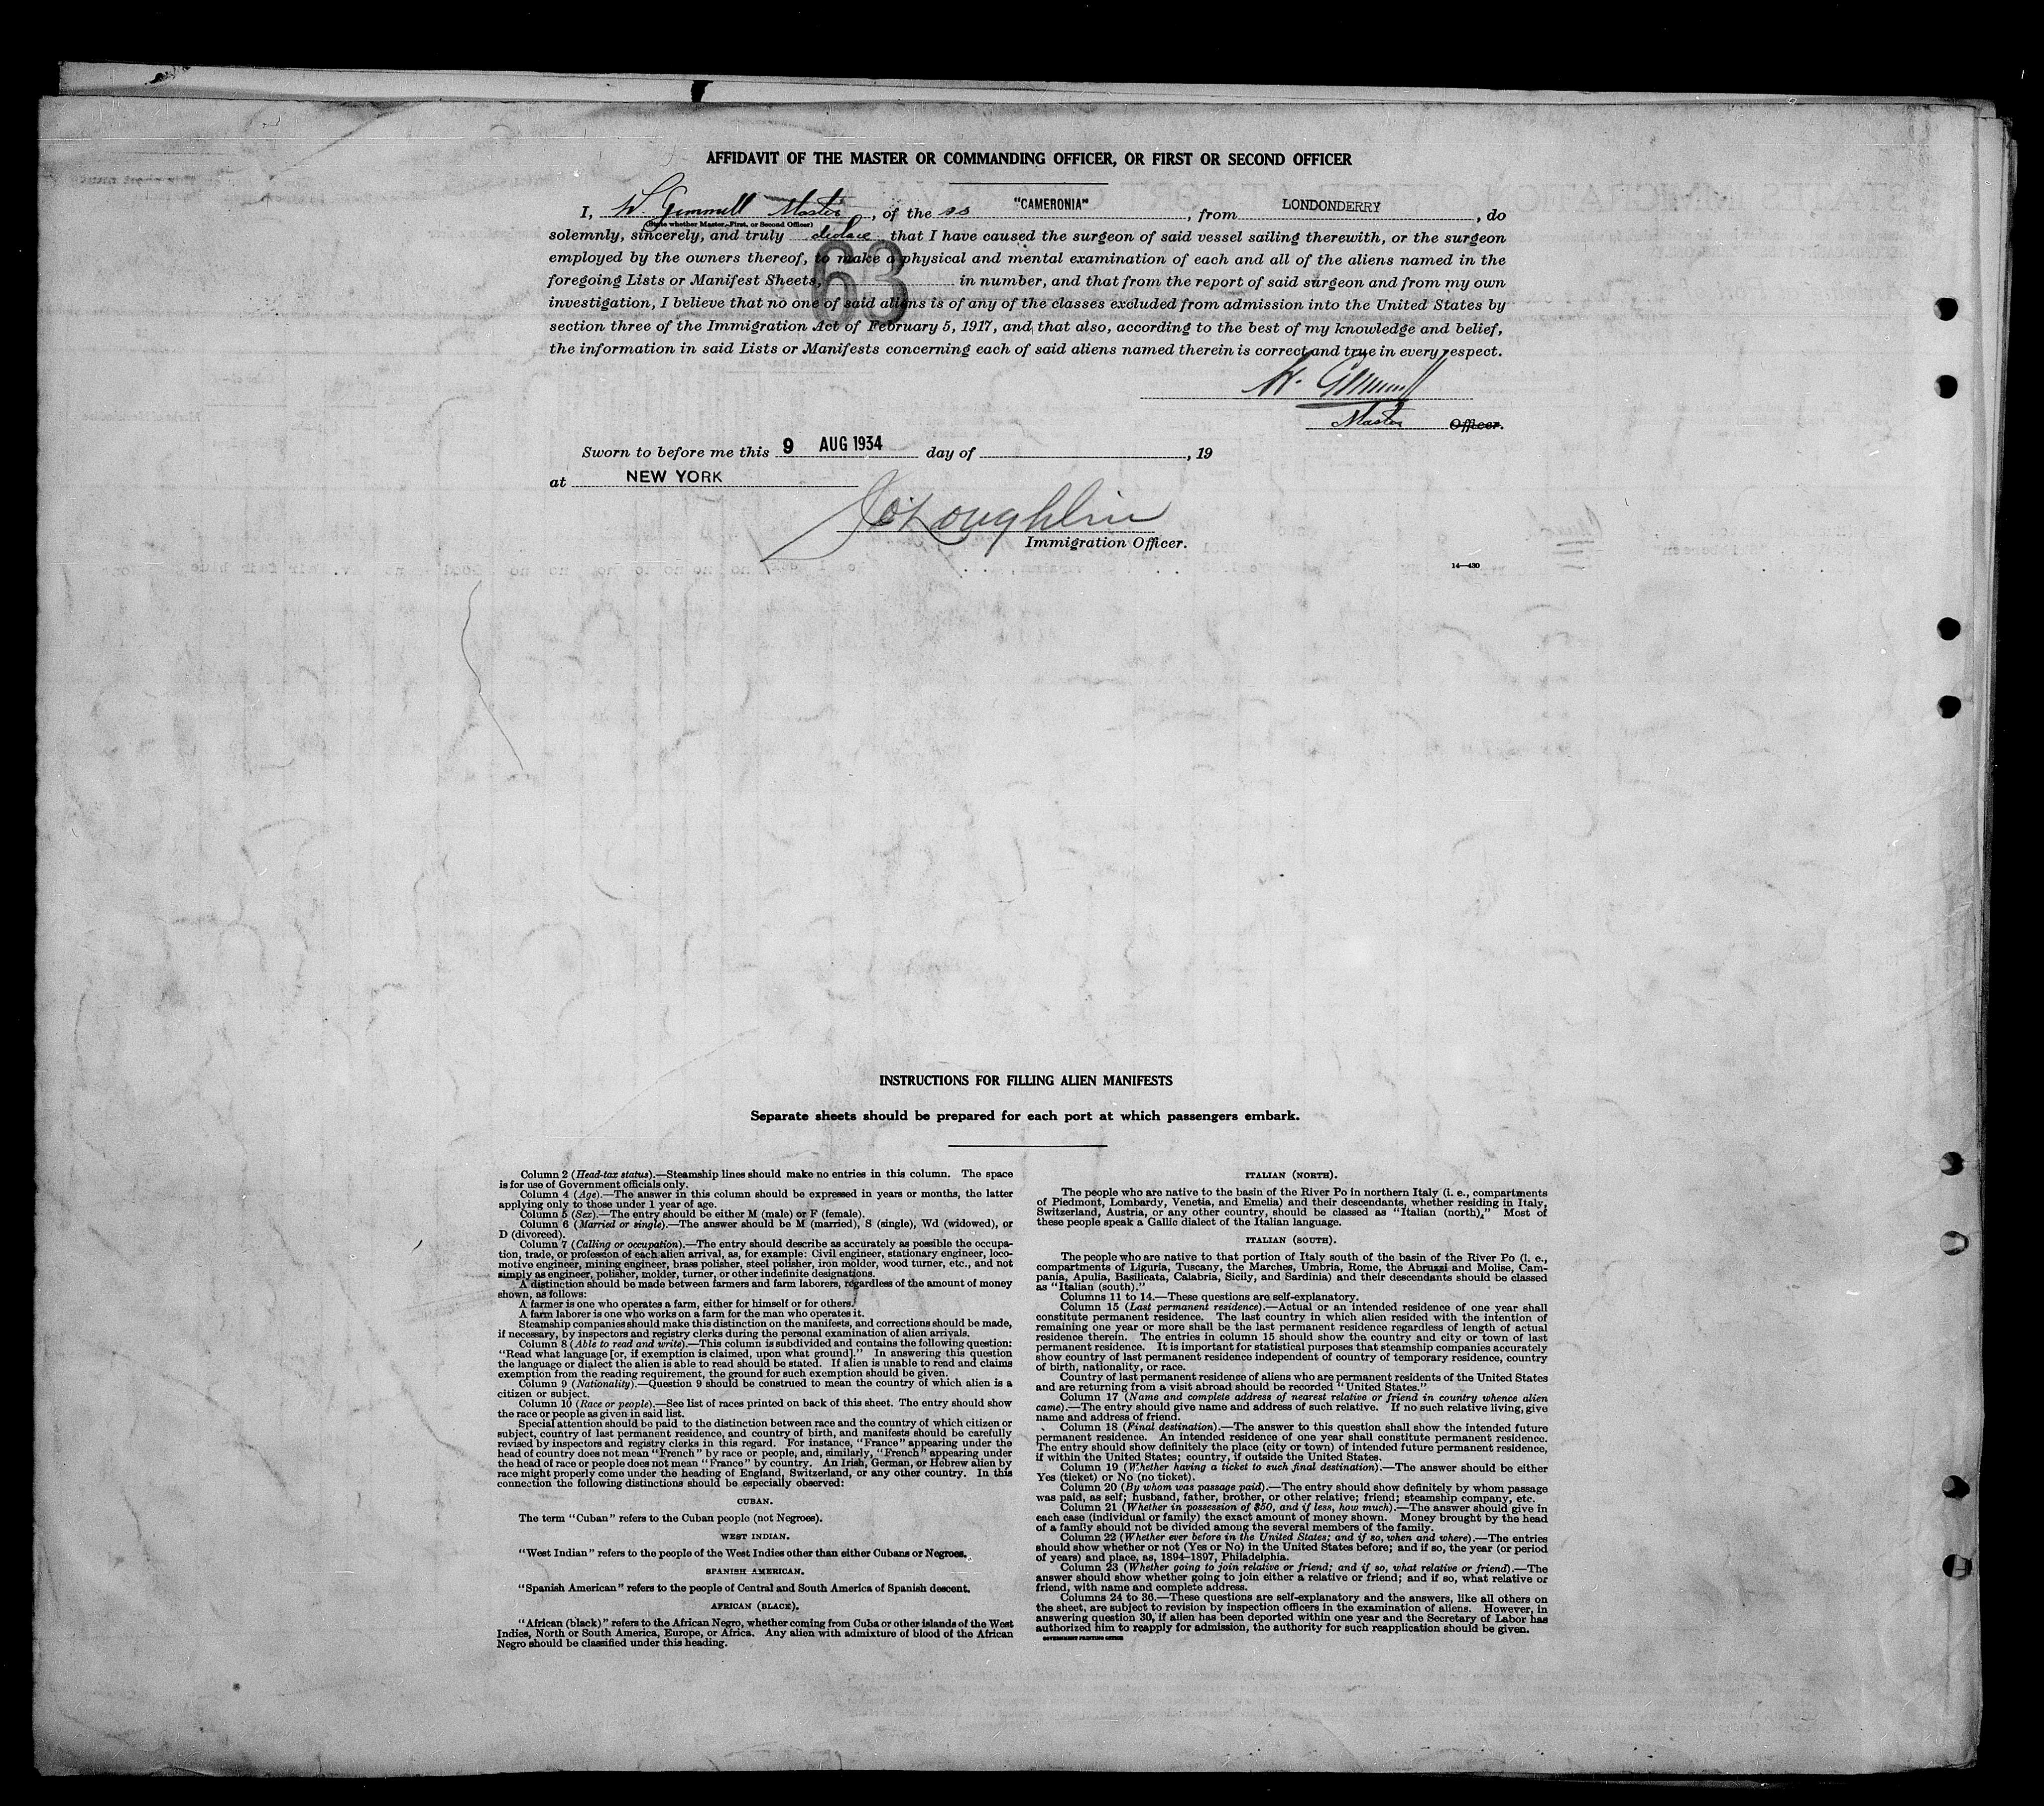 AFFIDAVIT OF THE MASTER OR COMMANDING OFFICER, OR FIRST OR SECOND OFFICER
I, W. Gemmell Master, of the ss "CAMERONIA", from LONDONDERRY, do
(State whether Master, First, or Second Officer)
solemnly, sincerely, and truly declare, that I have caused the surgeon of said vessel sailing therewith, or the surgeon
employed by the owners thereof, to make a physical and mental examination of each and all of the aliens named in the
foregoing Lists or Manifest Sheets, 63 in number, and that from the report of said surgeon and from my own
investigation, I believe that no one of said aliens is of any of the classes excluded from admission into the United States by
section three of the Immigration Act of February 5, 1917, and that also, according to the best of my knowledge and belief,
the information in said Lists or Manifests concerning each of said aliens named therein is correct and true in every respect.
W. Gemmell
Master Officer.
Sworn to before me this 9 AUG 1934 day of , 19
at NEW YORK
Immigration Officer.
14—430
INSTRUCTIONS FOR FILLING ALIEN MANIFESTS
Separate sheets should be prepared for each port at which passengers embark.
Column 2 (Head-tax status).—Steamship lines should make no entries in this column. The space
is for use of Government officials only.
Column 4 (Age).—The answer in this column should be expressed in years or months, the latter
applying only to those under 1 year of age.
Column 5 (Sex).—The entry should be either M (male) or F (female).
Column 6 (Married or single).—The answer should be M (married), S (single), Wd (widowed), or
D (divorced).
Column 7 (Calling or occupation).—The entry should describe as accurately as possible the occupa-
tion, trade, or profession of each alien arrival, as, for example: Civil engineer, stationary engineer, loco-
motive engineer, mining engineer, brass polisher, steel polisher, iron molder, wood turner, etc., and not
simply as engineer, polisher, molder, turner, or other indefinite designations.
A distinction should be made between farmers and farm laborers, regardless of the amount of money
shown, as follows:
A farmer is one who operates a farm, either for himself or for others.
A farm laborer is one who works on a farm for the man who operates it.
Steamship companies should make this distinction on the manifests, and corrections should be made,
if necessary, by inspectors and registry clerks during the personal examination of alien arrivals.
Column 8 (Able to read and write).—This column is subdivided and contains the following question:
"Read what language [or, if exemption is claimed, upon what ground]." In answering this question
the language or dialect the alien is able to read should be stated. If alien is unable to read and claims
exemption from the reading requirement, the ground for such exemption should be given.
Column 9 (Nationality).—Question 9 should be construed to mean the country of which alien is a
citizen or subject.
Column 10 (Race or people).—See list of races printed on back of this sheet. The entry should show
the race or people as given in said list.
Special attention should be paid to the distinction between race and the country of which citizen or
subject, country of last permanent residence, and country of birth, and manifests should be carefully
revised by inspectors and registry clerks in this regard. For instance, "France" appearing under the
head of country does not mean "French" by race or people, and, similarly, "French" appearing under
the head of race or people does not mean "France" by country. An Irish, German, or Hebrew alien by
race might properly come under the heading of England, Switzerland, or any other country. In this
connection the following distinctions should be especially observed:
CUBAN.
The term "Cuban" refers to the Cuban people (not Negroes).
WEST INDIAN.
"West Indian" refers to the people of the West Indies other than either Cubans or Negroes.
SPANISH AMERICAN.
"Spanish American" refers to the people of Central and South America of Spanish descent.
AFRICAN (BLACK).
"African (black)" refers to the African Negro, whether coming from Cuba or other islands of the West
Indies, North or South America, Europe, or Africa. Any alien with admixture of blood of the African
Negro should be classified under this heading.
ITALIAN (NORTH).
The people who are native to the basin of the River Po in northern Italy (i. e., compartments
of Piedmont, Lombardy, Venetia, and Emelia) and their descendants, whether residing in Italy,
Switzerland, Austria, or any other country, should be classed as "Italian (north)." Most of
these people speak a Gallic dialect of the Italian language.
ITALIAN (SOUTH).
The people who are native to that portion of Italy south of the basin of the River Po (i. e.,
compartments of Liguria, Tuscany, the Marches, Umbria, Rome, the Abruzzi and Molise, Cam-
pania, Apulia, Basilicata, Calabria, Sicily, and Sardinia) and their descendants should be classed
as "Italian (south)."
Columns 11 to 14.—These questions are self-explanatory.
Column 15 (Last permanent residence).—Actual or an intended residence of one year shall
constitute permanent residence. The last country in which alien resided with the intention of
remaining one year or more shall be the last permanent residence regardless of length of actual
residence therein. The entries in column 15 should show the country and city or town of last
permanent residence. It is important for statistical purposes that steamship companies accurately
show country of last permanent residence independent of country of temporary residence, country
of birth, nationality, or race.
Country of last permanent residence of aliens who are permanent residents of the United States
and are returning from a visit abroad should be recorded "United States."
Column 17 (Name and complete address of nearest relative or friend in country whence alien
came).—The entry should give name and address of such relative. If no such relative living, give
name and address of friend.
Column 18 (Final destination).—The answer to this question shall show the intended future
permanent residence. An intended residence of one year shall constitute permanent residence.
The entry should show definitely the place (city or town) of intended future permanent residence,
if within the United States; country, if outside the United States.
Column 19 (Whether having a ticket to such final destination).—The answer should be either
Yes (ticket) or No (no ticket).
Column 20 (By whom was passage paid).—The entry should show definitely by whom passage
was paid, as self; husband, father, brother, or other relative; friend; steamship company, etc.
Column 21 (Whether in possession of $50, and if less, how much).—The answer should give in
each case (individual or family) the exact amount of money shown. Money brought by the head
of a family should not be divided among the several members of the family.
Column 22 (Whether ever before in the United States; and if so, when and where).—The entries
should show whether or not (Yes or No) in the United States before; and if so, the year (or period
of years) and place, as, 1894–1897, Philadelphia.
Column 23 (Whether going to join relative or friend; and if so, what relative or friend).—The
answer should show whether going to join either a relative or friend; and if so, what relative or
friend, with name and complete address.
Columns 24 to 36.—These questions are self-explanatory and the answers, like all others on
the sheet, are subject to revision by inspection officers in the examination of aliens. However, in
answering question 30, if alien has been deported within one year and the Secretary of Labor has
authorized him to reapply for admission, the authority for such reapplication should be given.
GOVERNMENT PRINTING OFFICE